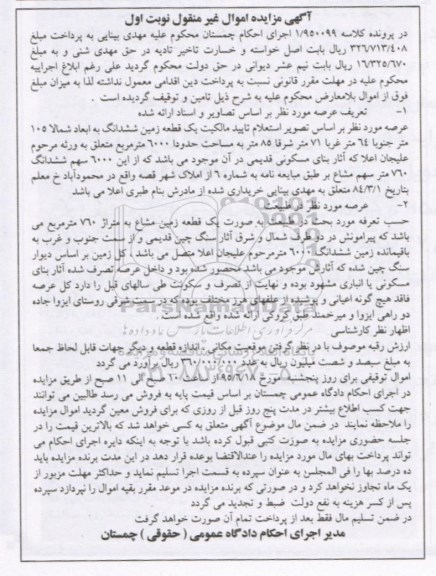 آگهی مزایده اموال غیر منقول نوبت اول
در پرونده کلاسه ۱/۹۵۰۰۹۹ اجرای احکام چمستان محکوم علیه مهدی بینایی به پرداخت مبلغ
۳۲۶/۷۱۳/۴۰۸ ریال بابت اصل خواسته و خسارت تاخیر تادیه در حق مهدی شنی و به مبلغ
۱۶/۳۲۵/۶۷۰ ریال بابت نیم عشر دولتی در حق دولت محکوم گردید علی رغم ابلاغ اجراییه
محکوم علیه در مهلت مقرر قانونی نسبت به پرداخت دین اقدامی معمول نداشته لذا به میزان مبلغ
فوق از اموال بلامعارض محکوم علیه به شرح ذیل تامین و توقیف گردیده است .
۱- تعریف عرصه مورد نظر بر اساس تصاویر و اسناد ارائه شده
عرصه مورد نظر بر اساس تصویر استعلام تایید مالکیت یک قطعه زمین ششدانگ به ابعاد شمالا ۱۰۵
متر جنوبا ۶۴ متر غربا ۷۱ متر شرقا ۸۵ متر به مساحت حدودا ۶۰۰۰ مترمربع متعلق به ورثه مرحوم
علیجان اعلا که آثار بنای مسکونی قدیمی در آن موجود می باشد که از این ۶۰۰۰ سهم ششدانگ
۷۶۰ متر سهم مشاع بر طبق مبایعه نامه به شماره ۶ از املاک شهر قصه واقع در محمودآباد خ معلم
بتاریخ ۸۴/۳/۱ متعلق به مهدی بینایی خریداری شده از مادرش بنام طبری اعلا می باشد
۲- عرصه مورد نظر در طبیعت
حسب تعرفه مورد بحث در طبیعت به صورت یک قطعه زمین مشاع به متراژ ۷۶۰ مترمربع می
باشد که پیرامونش در دو طرف شمال و شرق آثار سنگ چین قدیمی و از سمت جنوب و غرب به
باقیمانده زمین ششدانگ ۶۰۰۰ مترمرحوم علیجان اعلا متصل می باشد. کل زمین بر اساس دیوار
سنگ چین شده که آثارش موجود می باشد محصور شده بود و داخل عرصه تصرف شده آثار بنای
مسکونی یا انباری مشهود بوده و نهایت از تصرف و سکونت طی سالهای قبل را دارد کل عرصه
فاقد هیچ گونه اعیانی و پوشیده از علفهای هرز مختلف بوده که در سمت شرقی روستای ایزوا جاده
دو راهی ایزوا و میرخمند طبق کروکی ارائه شده واقع شده است
اظهار نظر کارشناسی
ارزش رقبه موصوف با در نظر گرفتن موقعیت مکانی ، اندازه قطعه و دیگر جهات قابل لحاظ جمعا
به مبلغ سیصد و شصت میلیون ریال به عدد ۳۶۰/۰۰۰/۰۰۰ ریال برآورد می گردد
اموال توقیفی برای روز پنجشنبه مورخ ۹۵/۶/۱۸ از ساعت ۱۰ صبح الی ۱۱ صبح از طریق مزایده
در اجرای احکام دادگاه عمومی چمستان بر اساس قیمت پایه به فروش می رسد طالبین می توانند
جهت کسب اطلاع بیشتر در مدت پنج روز قبل از روزی که برای فروش معین گردید اموال مزایده
را ملاحظه نمایند در ضمن مال موضوع آگهی متعلق به کسی خواهد شد که بالاترین قیمت را در
جلسه حضوری مزایده به صورت کتبی قبول کرده باشد با توجه به اینکه دایره اجرای احکام می
تواند پرداخت بهای مال مورد مزایده را عندالاقتضا بوعده قرار دهد در این مدت برنده مزایده باید
ده درصد بها را فی المجلس به عنوان سپرده به قسمت اجرا تسلیم نماید و حداکثر مهلت مزبور از
یک ماه تجاوز نخواهد کرد و در صورتی که برنده مزایده در موعد مقرر بقیه اموال را نپردازد سپرده
پس از کسر هزینه به نفع دولت ضبط و تجدید می گردد
در ضمن تسلیم مال فقط بعد از پرداخت تمام آن صورت خواهد گرفت
مدیر اجرای احکام دادگاه عمومی ( حقوقی ) چمستان